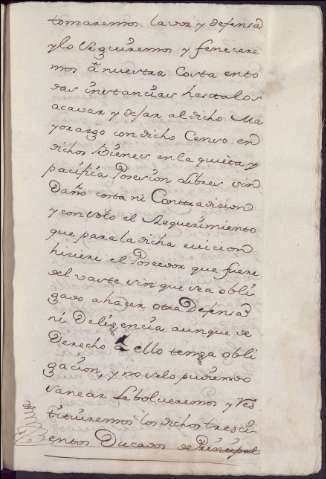 tomaremos la voz y defensa
y lo seguiremos y fenecere
mos a nuestra Costa en to
das instancias hasta los
acavar y dejar al dicho Ma
yorazgo con dicho Censo en
dichos Bienes en la quieta y
pacifica Posesion Libres sin
Daño costa ni Contradicion
y con solo el Requerimiento
que para la dicha evicion
hiciere el Poseedor que fuere
del vaste sin que sea obli
gado a hacer otra Defensa
ni Deligencia aunque de
Derecho a ello tenga obli
gacion, y no selo pudiendo
sanear Le bolveremos y Res
tituiremos los dichos tresci
entos Ducados de Principal